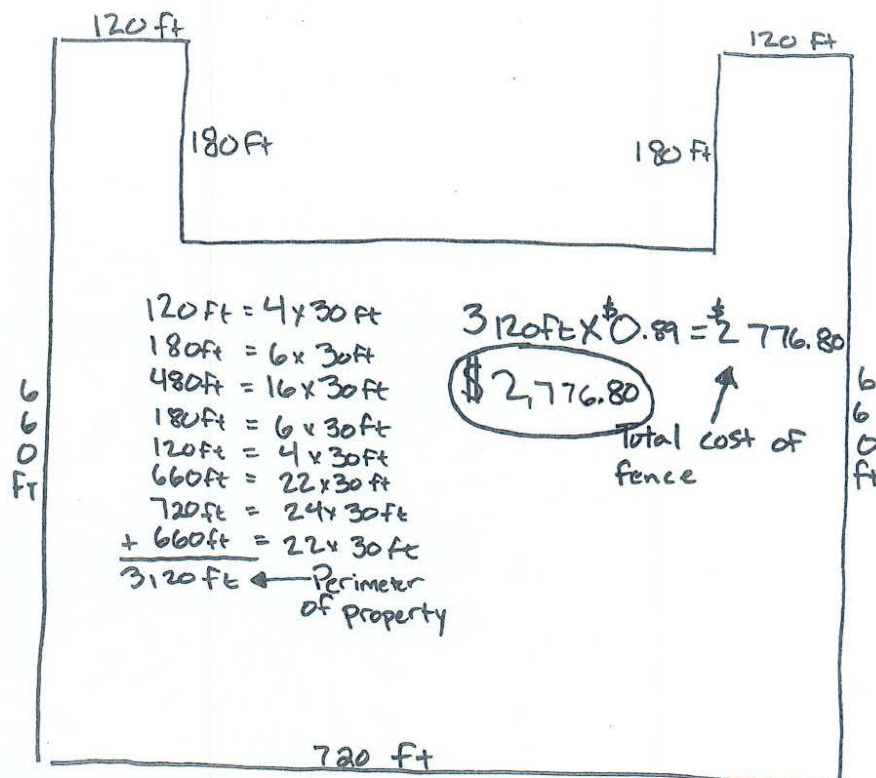 120 ft
120 ft
180 ft
180 ft
120 ft = 4 x 30 ft
180 ft = 6 x 30 ft
480 ft = 16 x 30 ft
180 ft = 6 x 30 ft
120 ft = 4 x 30 ft
660 ft = 22 x 30 ft
720 ft = 24 x 30 ft
+ 660 ft = 22 x 30 ft
3120 ft ← Perimeter
of property
3120 ft x $0.89 = $2776.80
$2,776.80
Total cost of
fence
660 FT
660 ft
720 ft